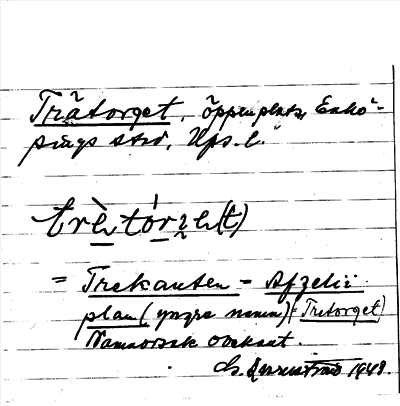 Trätorget, öppen plats, Enkö-
pings stad, Upps. l.
trè tórᶎe(t)
= Trekanten = Afzelii
plan (yngre namn) (= Tretorget)
Namnorsak obekant.
1948.